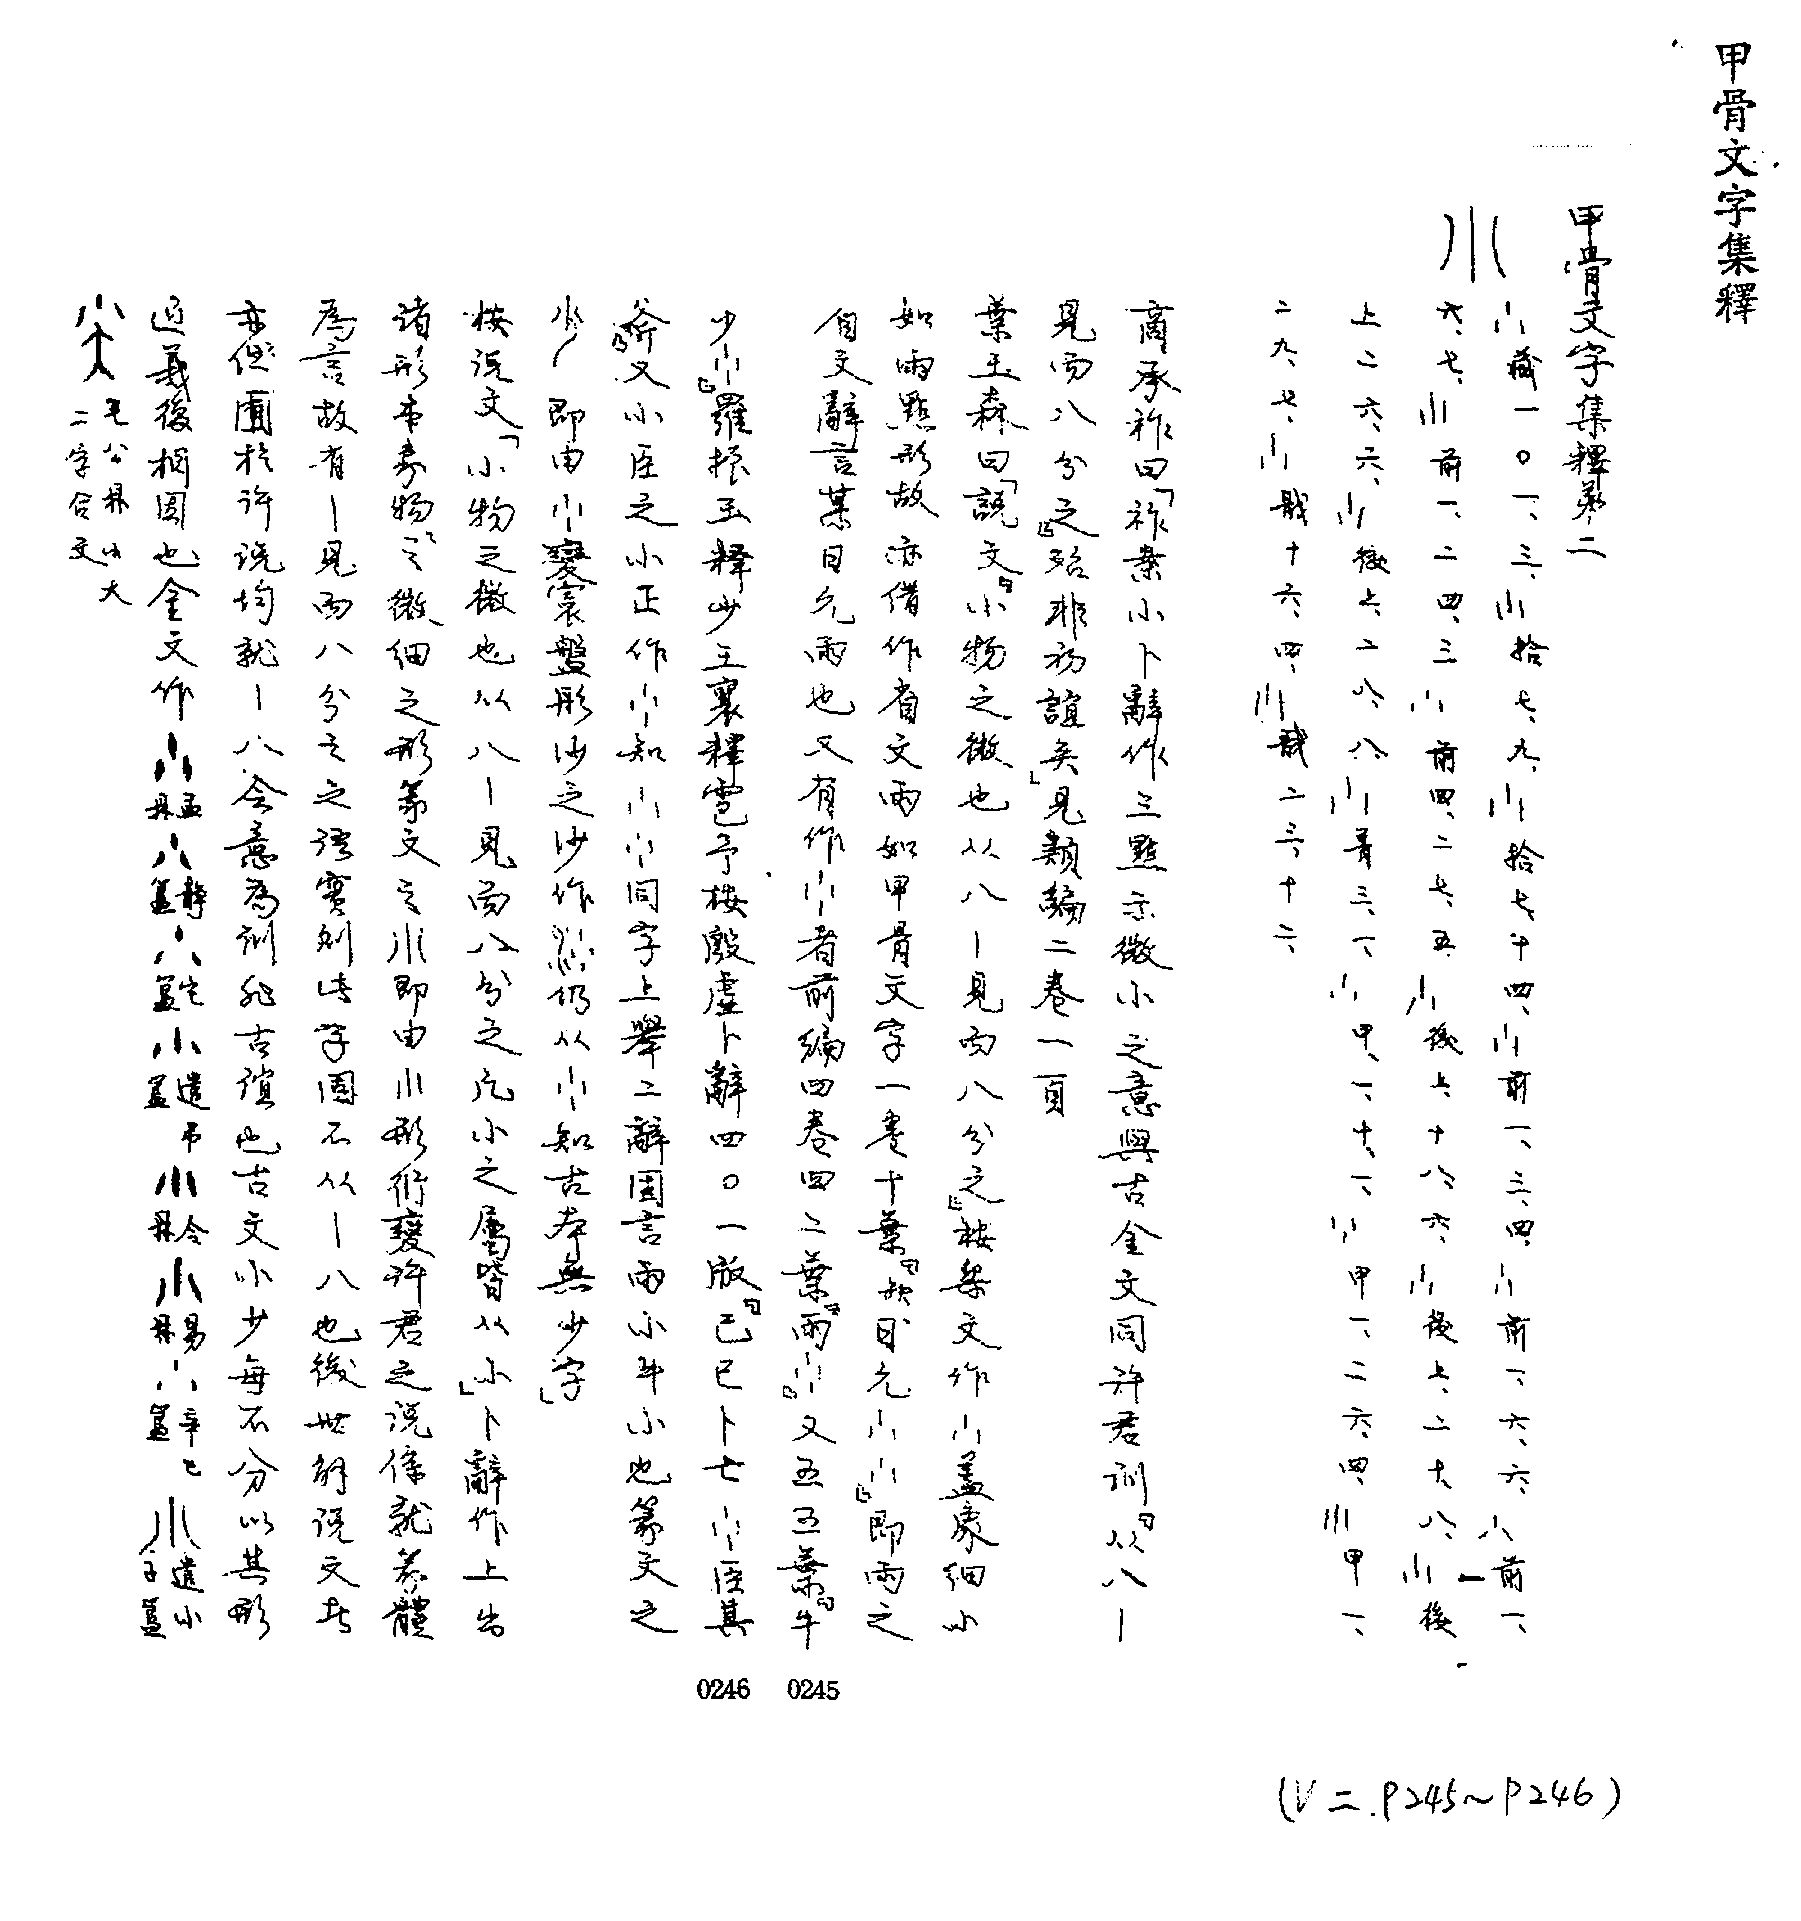 甲骨文字集釋
甲骨文字集釋第二
小
藏一〇一、三、拾七、九、拾七、十四、前一、三、四、前一、六、六、前一、
六、七、前一、二四、三、前四、二七、五、後上、十八、六、後上、二十、八、後
上二六、六、後上、二八、八、菁三、一、甲、一、十、一、甲一、二六、四、甲一、
二九、七、戩十六、四、戩二三、十二、
商承祚曰「祚案小卜辭作三點示微小之意與古金文同許君訓『从八丨
見而八分之』殆非初誼矣」見類編二卷一頁
葉玉森曰「說文『小物之微也从八丨見而八分之』按栔文作小蓋象細小
如雨點形故亦借作省文雨如甲骨文字一卷十葉『日允小』即雨之
省文辭言某日允雨也又有作者前編四卷四二葉『雨』又五五葉『牛
少』羅振玉釋少王襄釋雹予按殷虛卜辭四〇一版『己巳卜七臣其
又小臣之小正作知同字上舉二辭固言雨小牛小也篆文之
少即由小變寰盤彤沙之沙作仍从小知古本無少字」
按說文「小物之微也从八丨見而八分之凡小之屬皆从小」卜辭作上出
諸形本象物之微細之形篆文之小即由小形衍變許君之說係就篆體
為言故有丨見而八分之之語實則此字固不从丨八也後世解說文者
亦但囿於許說均就丨八會意為訓非古誼也古文小少每不分以其形
近義復相因也金文作小盂鼎小靜簋小宅簋小遣弔小令鼎小易鼎小辛巳簋小遣小子簋
毛公鼎小大
二字合文
0246 0245
(V二.P245~P246)